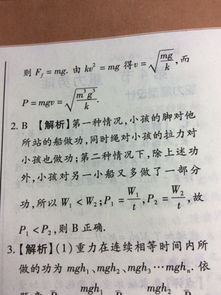 则 F_f = mg. 由 kv² = mg 得 v = √(mg/k), 而
P = mgv = √(m³g³/k).
2. B 【解析】第一种情况,小孩的脚对他
所站的船做功,同时绳对小孩的拉力对
小孩也做功;第二种情况下,除上述功
外,小孩对另一小船又多做了一部分
功,所以 W₁ < W₂; P₁ = W₁/t, P₂ = W₂/t, 故
P₁ < P₂, 则 B 正确.
3.【解析】(1)重力在连续相等时间内所
做的功为 mgh₁、mgh₂、mgh₃…mghₙ. 依
mgh₁ mgh₂